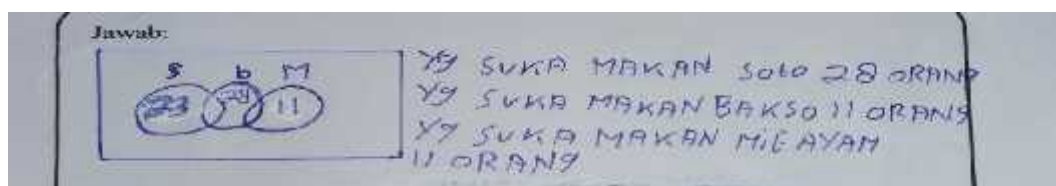 Jawab:
S b M
23 24 11
Yg SUKA MAKAN SOtO 28 ORANG
Yg SUKA MAKAN BAKSO 11 ORANG
Yg SUKA MAKAN MiE AYAM
11 ORANG